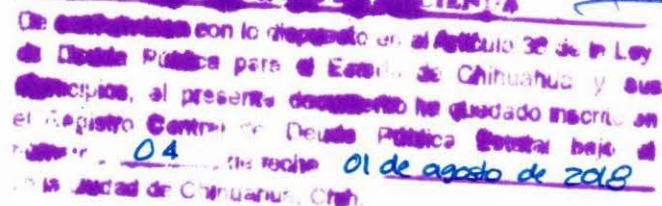 De con lo dispuesto en el Artículo 36 de la Ley
de Deuda Pública para el Estado de Chihuahua y sus
Municipios, el presente documento ha quedado inscrito en
el Registro Central de Deuda Pública Estatal bajo el
número 04 de fecha 01 de agosto de 2018
la ciudad de Chihuahua, Chih.